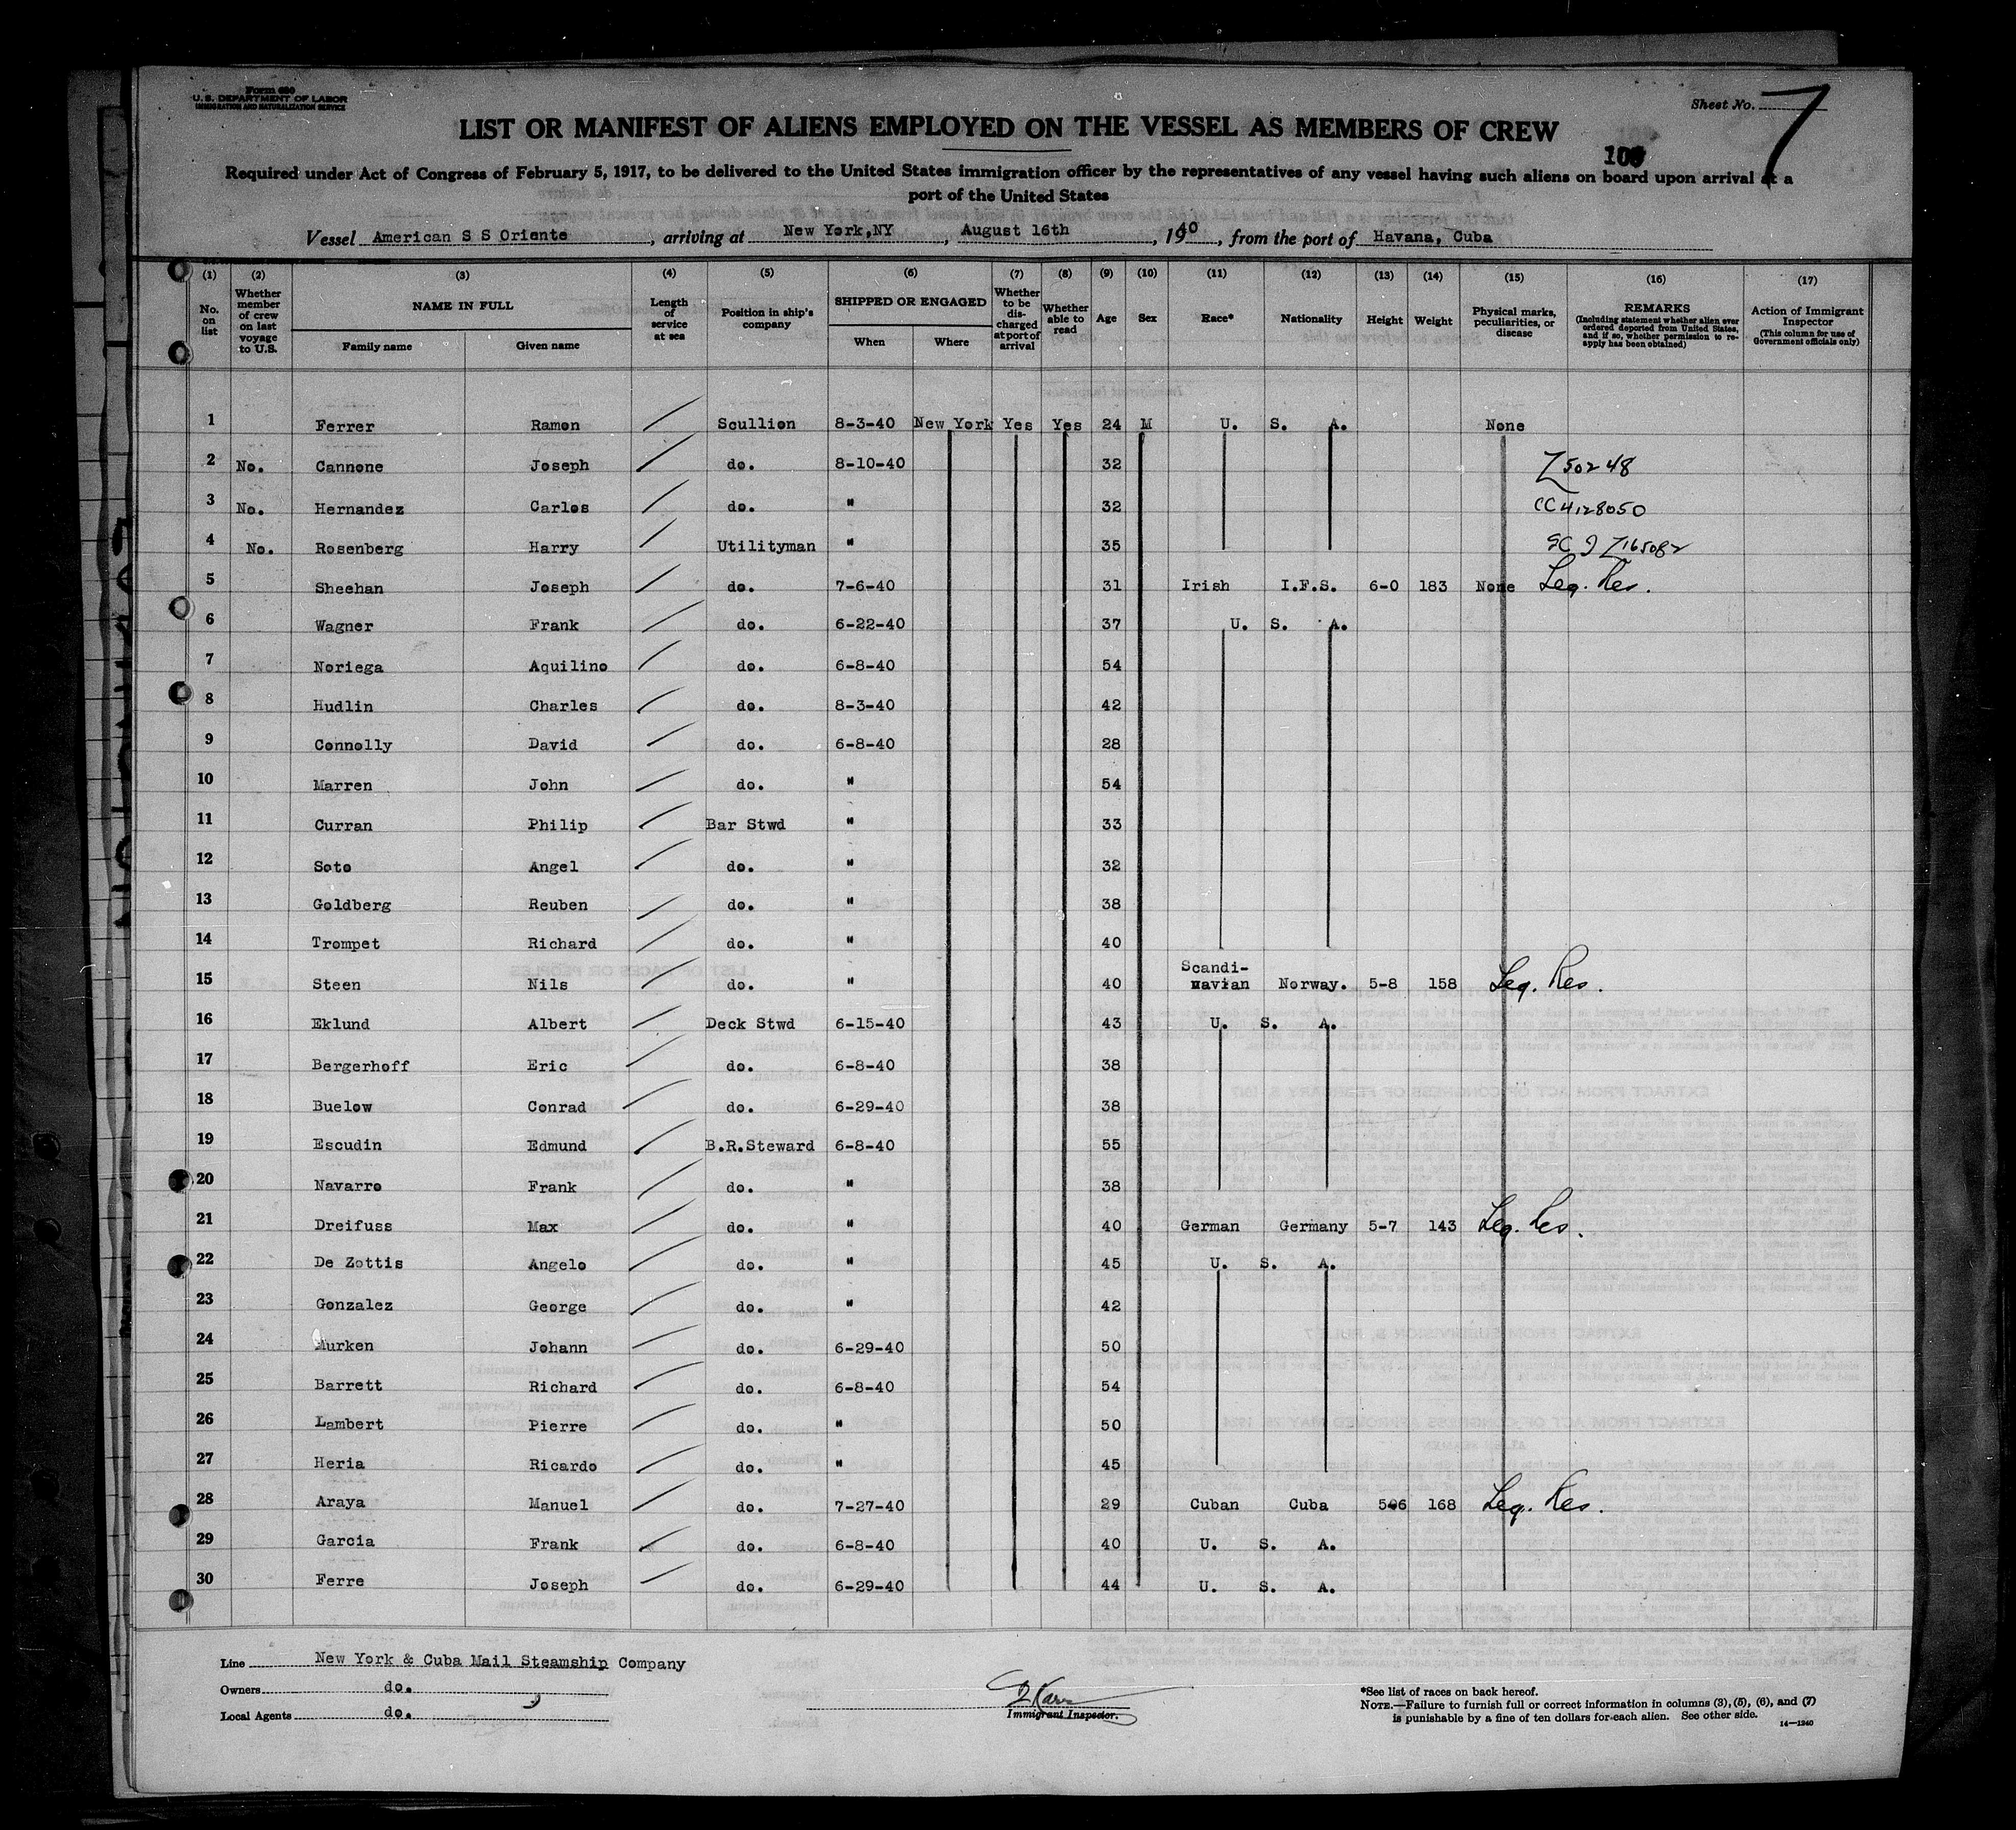 Form 680
U.S. DEPARTMENT OF LABOR
IMMIGRATION AND NATURALIZATION SERVICE
Sheet No. 7
LIST OR MANIFEST OF ALIENS EMPLOYED ON THE VESSEL AS MEMBERS OF CREW
Required under Act of Congress of February 5, 1917, to be delivered to the United States immigration officer by the representatives of any vessel having such aliens on board upon arrival at a
port of the United States
Vessel American S S Oriente, arriving at New York,NY, August 16th, 1940, from the port of Havana, Cuba
(1) (2) (3) (4) (5) (6) (7) (8) (9) (10) (11) (12) (13) (14) (15) (16) (17)
No. on list
Whether member of crew on last voyage to U.S.
NAME IN FULL
Family name
Given name
Length of service at sea
Position in ship's company
SHIPPED OR ENGAGED
When
Where
Whether to be discharged at port of arrival
Whether able to read
Age
Sex
Race*
Nationality
Height
Weight
Physical marks, peculiarities, or disease
REMARKS
(Including statement whether alien ever ordered deported from United States, and if so, whether permission to reapply has been obtained)
Action of Immigrant Inspector
(This column for use of Government officials only)
1 Ferrer Ramon Scullion 8-3-40 New York Yes Yes 24 M U. S. A. None
2 No. Cannone Joseph do. 8-10-40 32 Z50248
3 No. Hernandez Carlos do. " 32 CC4128050
4 No. Rosenberg Harry Utilityman " 35 Z165082
5 Sheehan Joseph do. 7-6-40 31 Irish I.F.S. 6-0 183 None Leg. Res.
6 Wagner Frank do. 6-22-40 37 U. S. A.
7 Noriega Aquilino do. 6-8-40 54
8 Hudlin Charles do. 8-3-40 42
9 Connolly David do. 6-8-40 28
10 Marren John do. " 54
11 Curran Philip Bar Stwd " 33
12 Soto Angel do. " 32
13 Goldberg Reuben do. " 38
14 Trompet Richard do. " 40
15 Steen Nils do. " 40 Scandi-navian Norway. 5-8 158 Leg. Res.
16 Eklund Albert Deck Stwd 6-15-40 43 U. S. A.
17 Bergerhoff Eric do. 6-8-40 38
18 Buelow Conrad do. 6-29-40 38
19 Escudin Edmund B.R.Steward 6-8-40 55
20 Navarro Frank do. " 38
21 Dreifuss Max do. " 40 German Germany 5-7 143 Leg. Res.
22 De Zottis Angelo do. " 45 U. S. A.
23 Gonzalez George do. " 42
24 Murken Johann do. 6-29-40 50
25 Barrett Richard do. 6-8-40 54
26 Lambert Pierre do. " 50
27 Heria Ricardo do. " 45
28 Araya Manuel do. 7-27-40 29 Cuban Cuba 506 168 Leg. Res.
29 Garcia Frank do. 6-8-40 40 U. S. A.
30 Ferre Joseph do. 6-29-40 44 U. S. A.
Line New York & Cuba Mail Steamship Company
Owners do.
Local Agents do.
Immigrant Inspector.
*See list of races on back hereof.
NOTE.—Failure to furnish full or correct information in columns (3), (5), (6), and (7)
is punishable by a fine of ten dollars for each alien. See other side.
14—1240